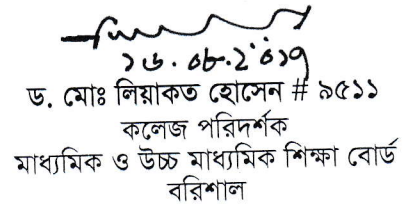 ১৬.০৮.২০১৭
ড. মোঃ লিয়াকত হোসেন # ৯৫১১
কলেজ পরিদর্শক
মাধ্যমিক ও উচ্চ মাধ্যমিক শিক্ষা বোর্ড
বরিশাল